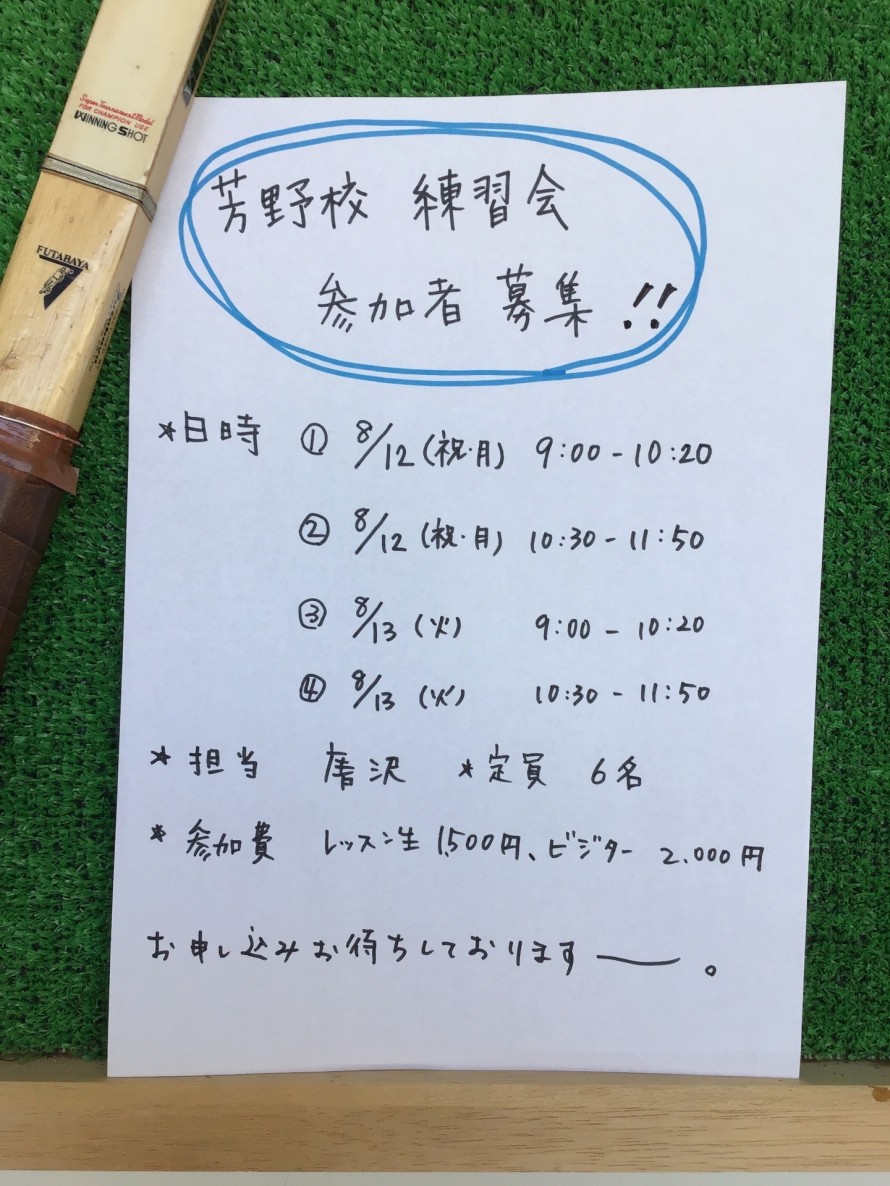 Super Tournament Model
FOR CHAMPION USE
WINNING SHOT
FUTABAYA
芳野校 練習会
参加者 募集 !!
*日時 ① 8/12(祝·月) 9:00-10:20
② 8/12(祝·月) 10:30-11:50
③ 8/13(火) 9:00-10:20
④ 8/13(火) 10:30-11:50
*担当 唐沢 *定員 6名
*参加費 レッスン生 1,500円、ビジター 2,000円
お申し込みお待ちしておりますー。